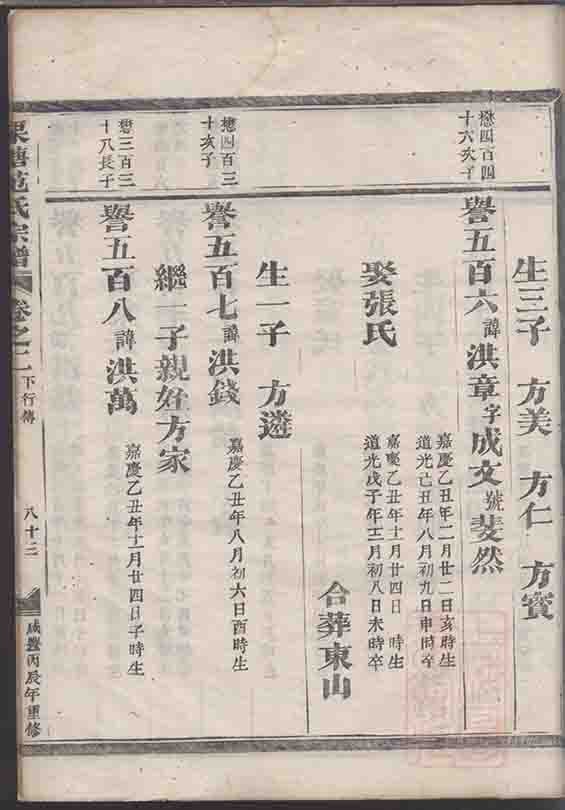 生三子 方美 方仁 方寳
懋四百四
十六次子
譽五百六諱洪章字成文號斐然
嘉慶乙丑年二月廿二日亥時生
道光己丑年八月初九日申時卒
娶張氏
嘉慶乙丑年十一月廿四日 時生
道光戊子年三月初八日未時卒
合葬東山
生一子 方遴
懋四百三
十次子
譽五百七諱洪錢
嘉慶乙丑年八月初六日酉時生
繼一子親姪方家
懋三百三
十八長子
譽五百八諱洪萬
嘉慶乙丑年十一月廿四日子時生
范氏宗譜
卷之二
下行傳
八十二
咸豐丙辰年重修